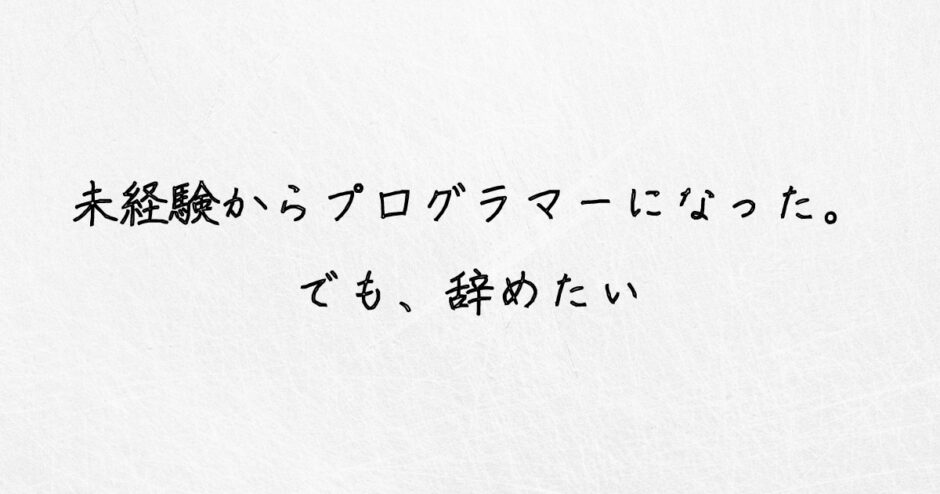 未経験からプログラマーになった。
でも、辞めたい